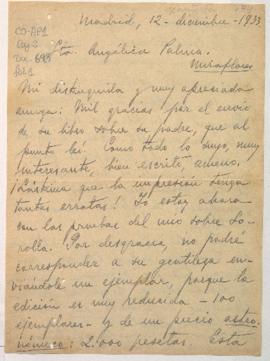 Madrid, 12-diciembre-1933
Srta. Angélica Palma.
Miraflores
Mi distinguida y muy apreciada
amiga: Mil gracias por el envío
de su libro sobre su padre, que al
punto leí. Como todo lo suyo, muy
interesante, bien escrito, ameno.
¡Lástima que la impresión tenga
tantas erratas! Yo estoy ahora
con las pruebas del mío sobre So-
rolla. Por desgracia, no podré
corresponder a su gentileza en-
viándole un ejemplar, porque la
edición es muy reducida - 100
ejemplares - y de un precio astro-
nómico: 2.000 pesetas. Esta